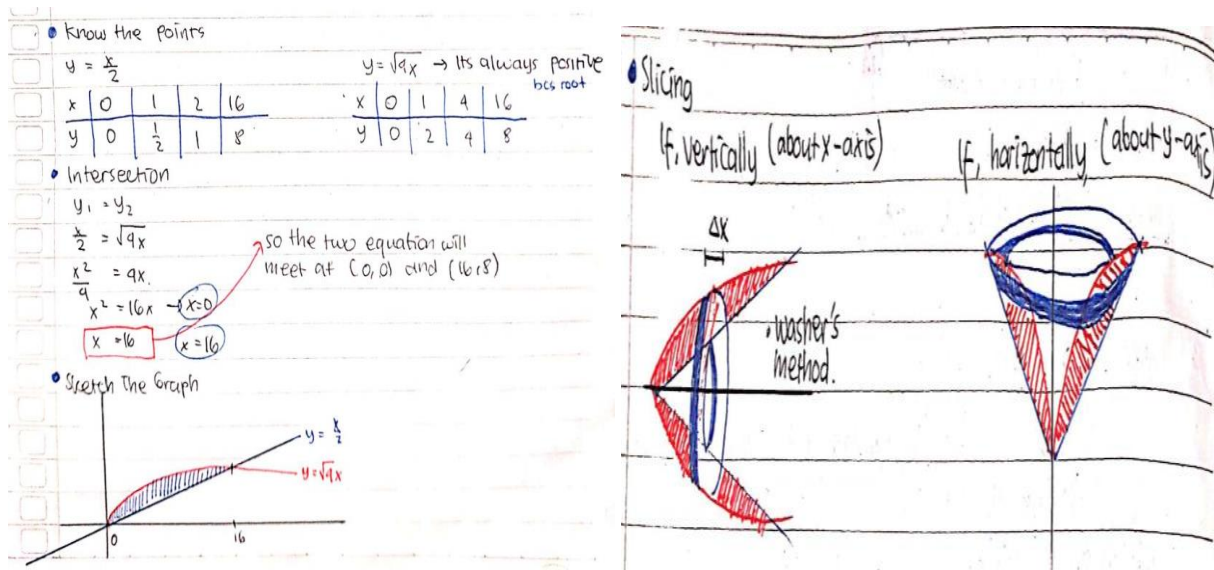 • Know the points
y = x/2
x 0 1 2 16
y 0 1/2 1 8
y = √4x → Its always positive
bcs root
x 0 1 4 16
y 0 2 4 8
• Intersection
y₁ = y₂
x/2 = √4x
x²/4 = 4x.
x² = 16x → x=0
x = 16
x = 16
so the two equation will
meet at (0,0) and (16,8)
• Sketch The Graph
y = x/2
y = √4x
0
16
• Slicing
If, vertically (about x-axis)
Δx
• washer's
method.
If, horizontally, (about y-axis)